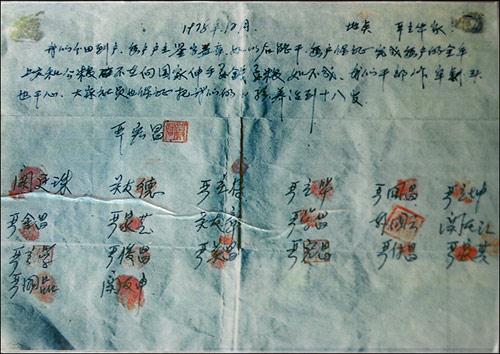 1978年12月. 地点 严立华家
我们分田到户,每户户主签字盖章,如以后能干,每户保证完成每户的全年
上交和公粮.不在向国家伸手要钱要粮.如不成,我们干部作牢刹头
也干心.大家社员也保证把我们的小孩养活到十八岁
严宏昌
关廷珠 关友德 严立付 严立华 严国昌 严立坤
严金昌 严家芝 严学昌 关友江
严立学 严俊昌 严美昌 严宏昌 严付昌 严家其
严国品 关友申